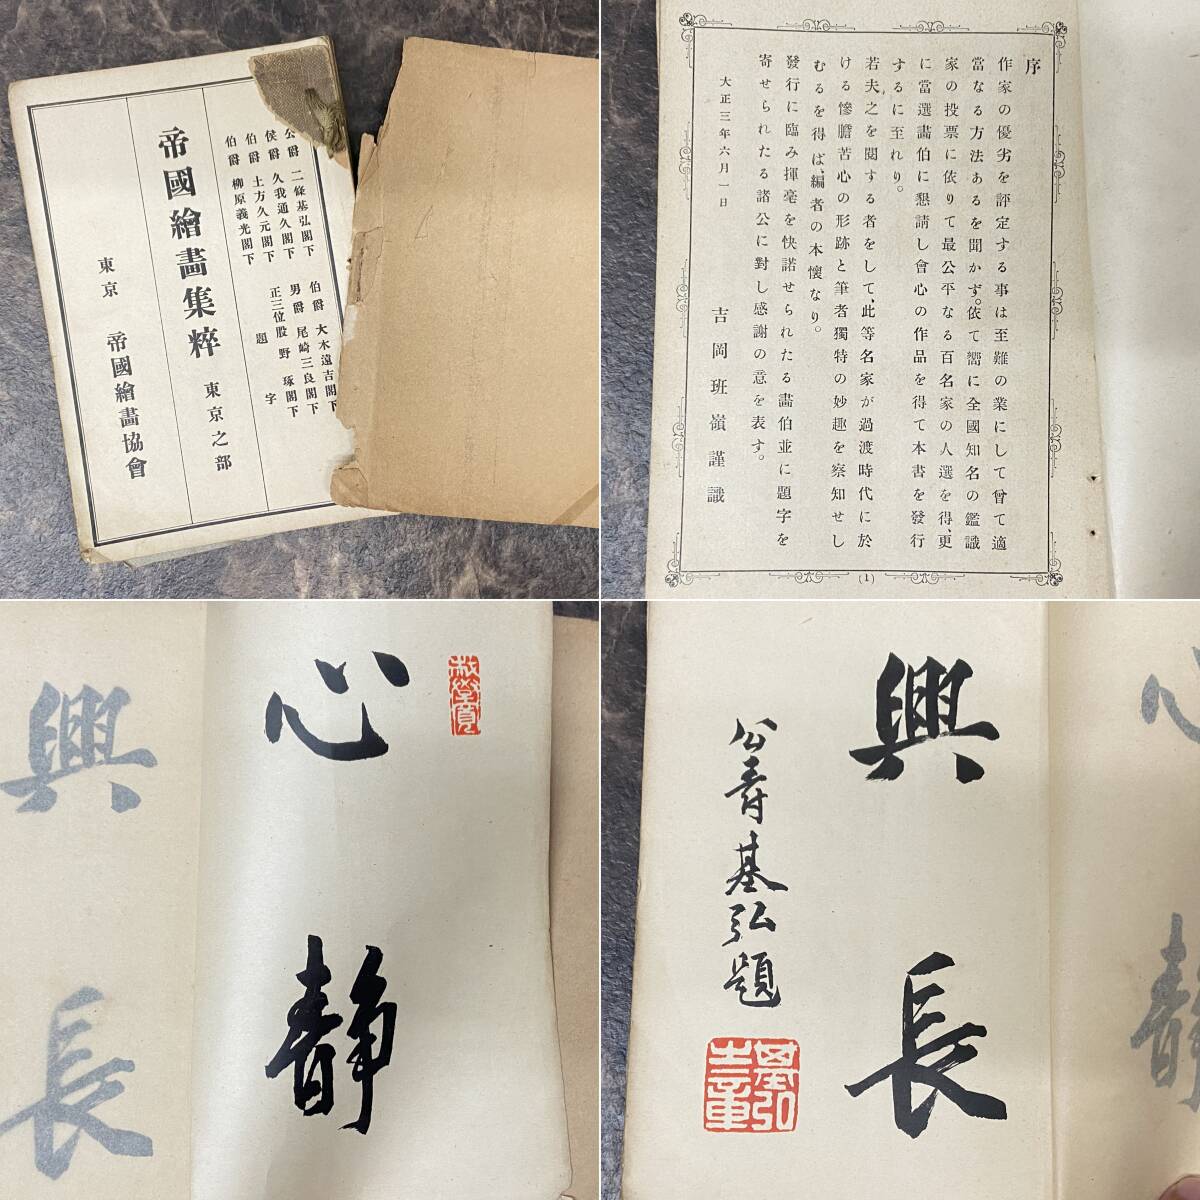 公爵 二條基弘閣下
侯爵 久我通久閣下
伯爵 土方久元閣下
伯爵 柳原義光閣下
伯爵 大木遠吉閣下
男爵 尾崎三良閣下
正三位股野琢閣下
題字
帝國繪畵集粹 東京之部
東京 帝國繪畵協會
序
作家の優劣を評定する事は至難の業にして曾て適
當なる方法あるを聞かず。依て嚮に全國知名の鑑識
家の投票に依りて最公平なる百名家の人選を得、更
に當選畵伯に懇請し會心の作品を得て本書を發行
するに至れり。
若夫之を閲する者をして、此等名家が過渡時代に於
ける慘膽苦心の形跡と筆者獨特の妙趣を察知せし
むるを得ば、編者の本懷なり。
發行に臨み揮毫を快諾せられたる畵伯並に題字を
寄せられたる諸公に對し感謝の意を表す。
大正三年六月一日
吉岡班嶺謹識
(1)
心靜
興長
興長
公壽基弘題
心靜